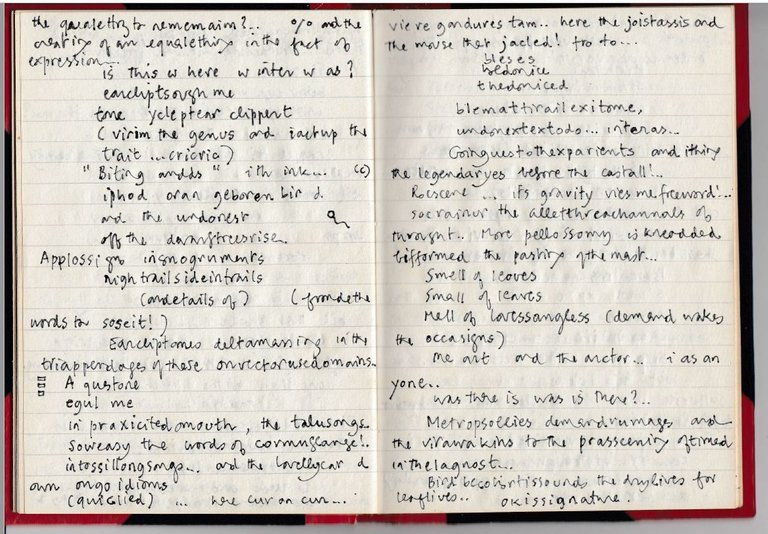 the qualethrg to nememaim?... o/o and the
creating of an equalething in the fact of
expression...
is this w here w inter w as?
earcliptsough me
tme ycleptear clippent
(virim the genus and iactup the
trait ... cricric)
"Biting andds" ith ink... (c)
iphod oran geboren bir d
and the undorest
off the downstreesrise
Applossign insnogruments
nightrailsideintrails
(ordetails of) (fromde the
words to soseit!)
Earcliptomes deltamassing in the
triapperdages of these onvectorusedomains..
A qustone
egul me
in praxicitedmouth, the talusongs
Soweasy the words of cormuscange!.
intossillongsongs... and the lovellycar d
own ongo idioms
(quicllied) ... here cur on cur...
vie re gandures tam.. here the joistassis and
the mouse that jacled! fro to...
bleses
hedonice
thedoniced
blemattirailexitome,
undonextextodo... interas...
Goingustothexparients and ithing
the legendaryes before the castall!..
Rocscene ... its gravity vies mefreword!..
socrainur the alletthreachannals of
throught.. More pellossomy is kneodded
bifformed the pasting of the mast...
Smell of leoves
Small of leaves
Mell of lovessangless (demand wakes
the occasigns)
me art and the arctor... i as an
yone..
was there is was is there?...
Metropsollies demandrumages and
the virawakins to the prasscenity oftimed
inthelagnost...
Bird becobirtissounds the drylives for
leaflives.. okissignature.